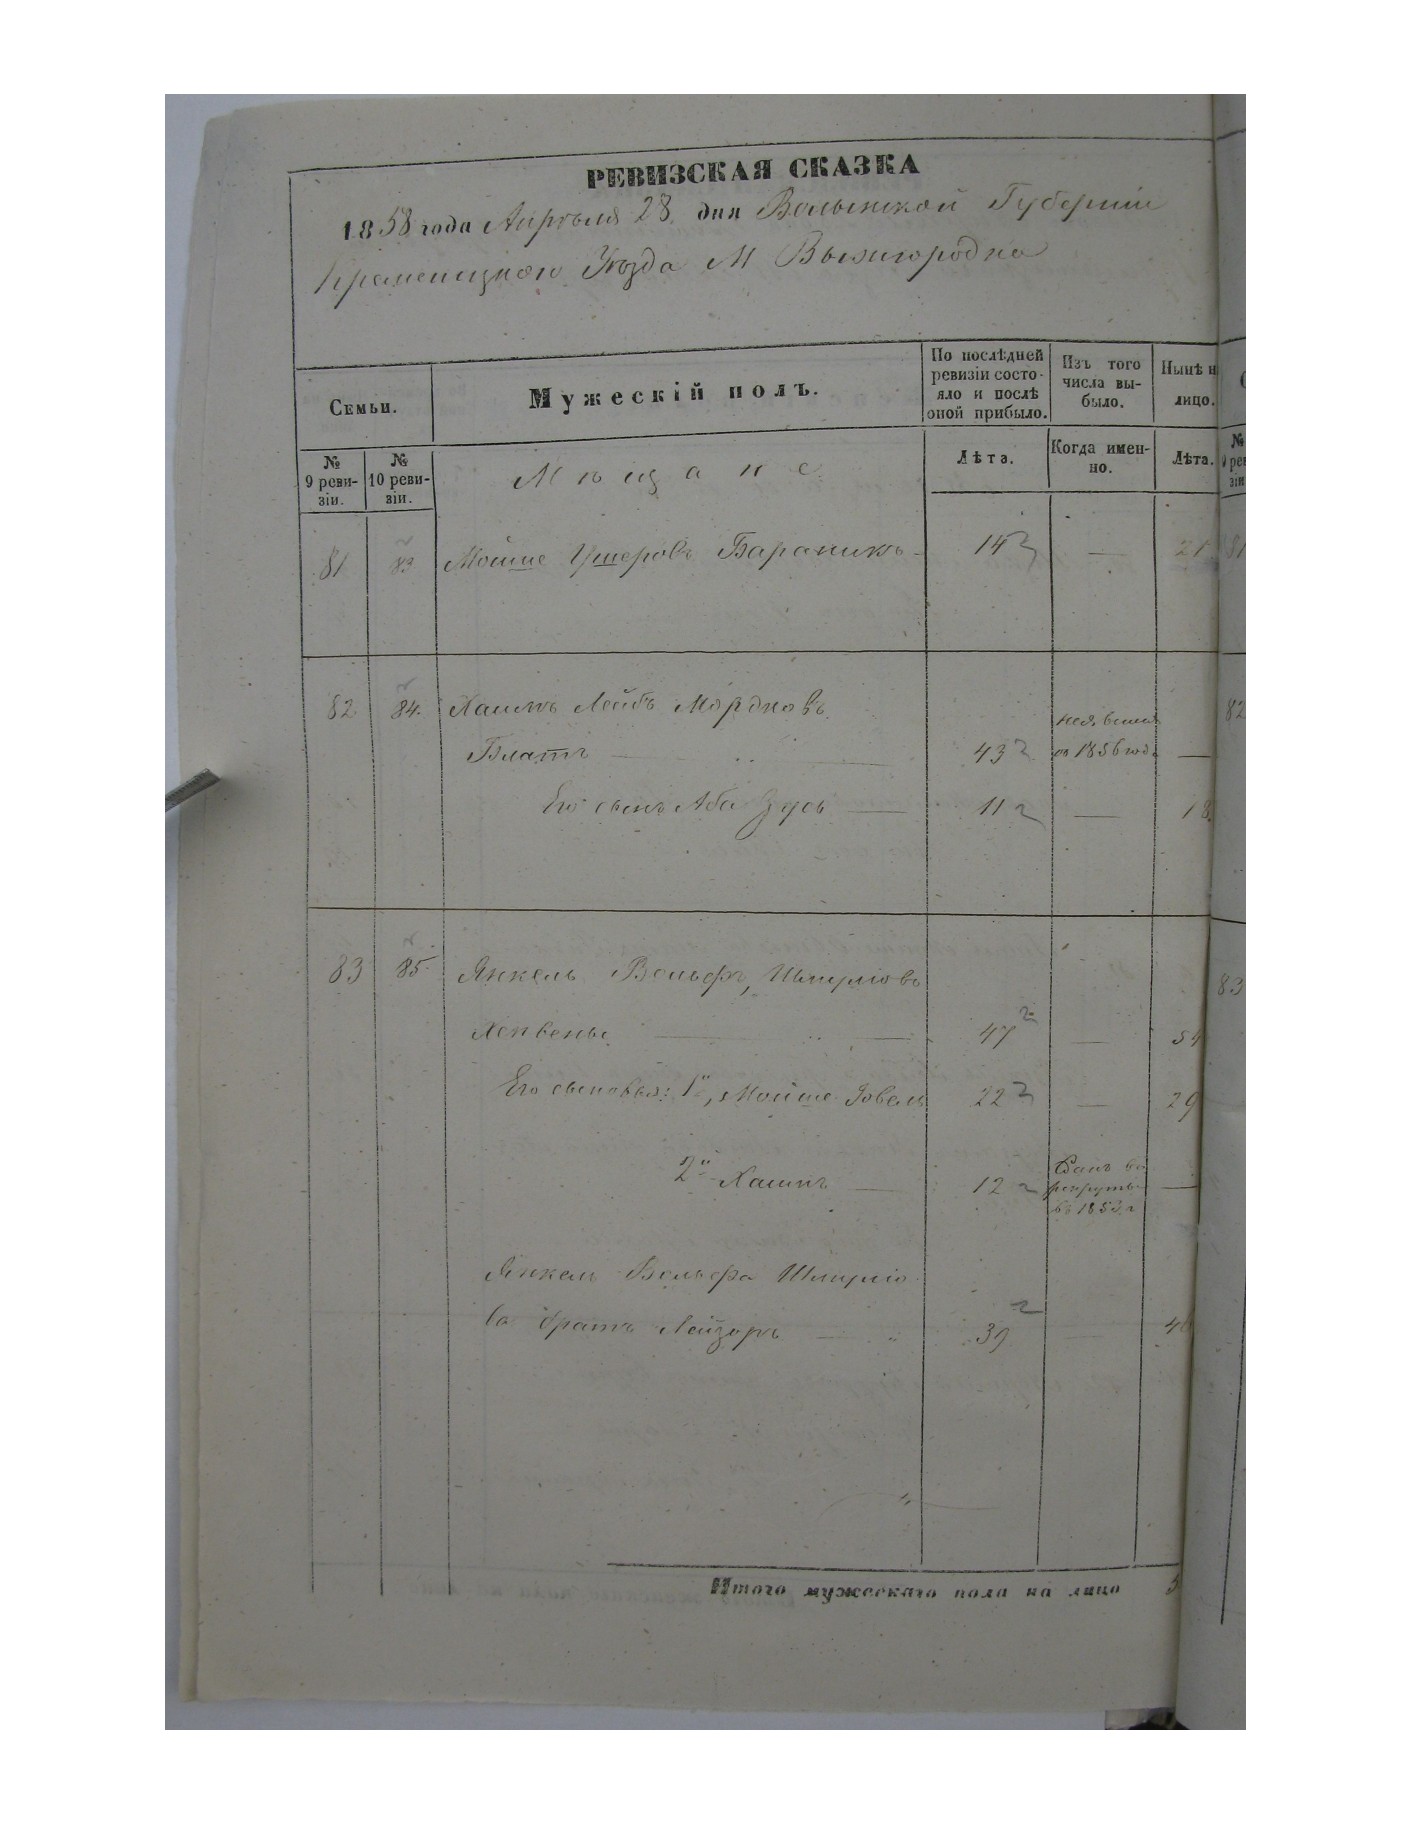 РЕВИЗСКАЯ СКАЗКА
1858 года Апреля 28 дня Волынской Губерніи
Кременецкого Уѣзда М Вышгородка
Семьи.
Мужескій полъ.
По послѣдней ревизіи состояло и послѣ оной прибыло.
Изъ того числа выбыло.
Нынѣ н
лицо.
№ 9 ревизіи.
№ 10 ревизіи.
Мѣщане
Лѣта.
Когда именно.
Лѣта.
81 83 Мойше Ушеровъ Бараникъ 14 — 21
82 84. Хаимъ Лейбъ Мордковъ
Блатъ — 43 неявки съ 1856 года —
Его сынъ Аба Зусь — 11 — 18.
83 85. Янкель Вольфъ Шмулiовъ
47 — 54
Его сыновья: 1й, Мойше Іовель 22 — 29
2й Хаимъ — 12 Сданъ въ рекруты въ 1853 г —
Янкель Вольфа Шмулiо
ва братъ Лейзоръ — 39 —
Итого мужескаго пола на лицо 5